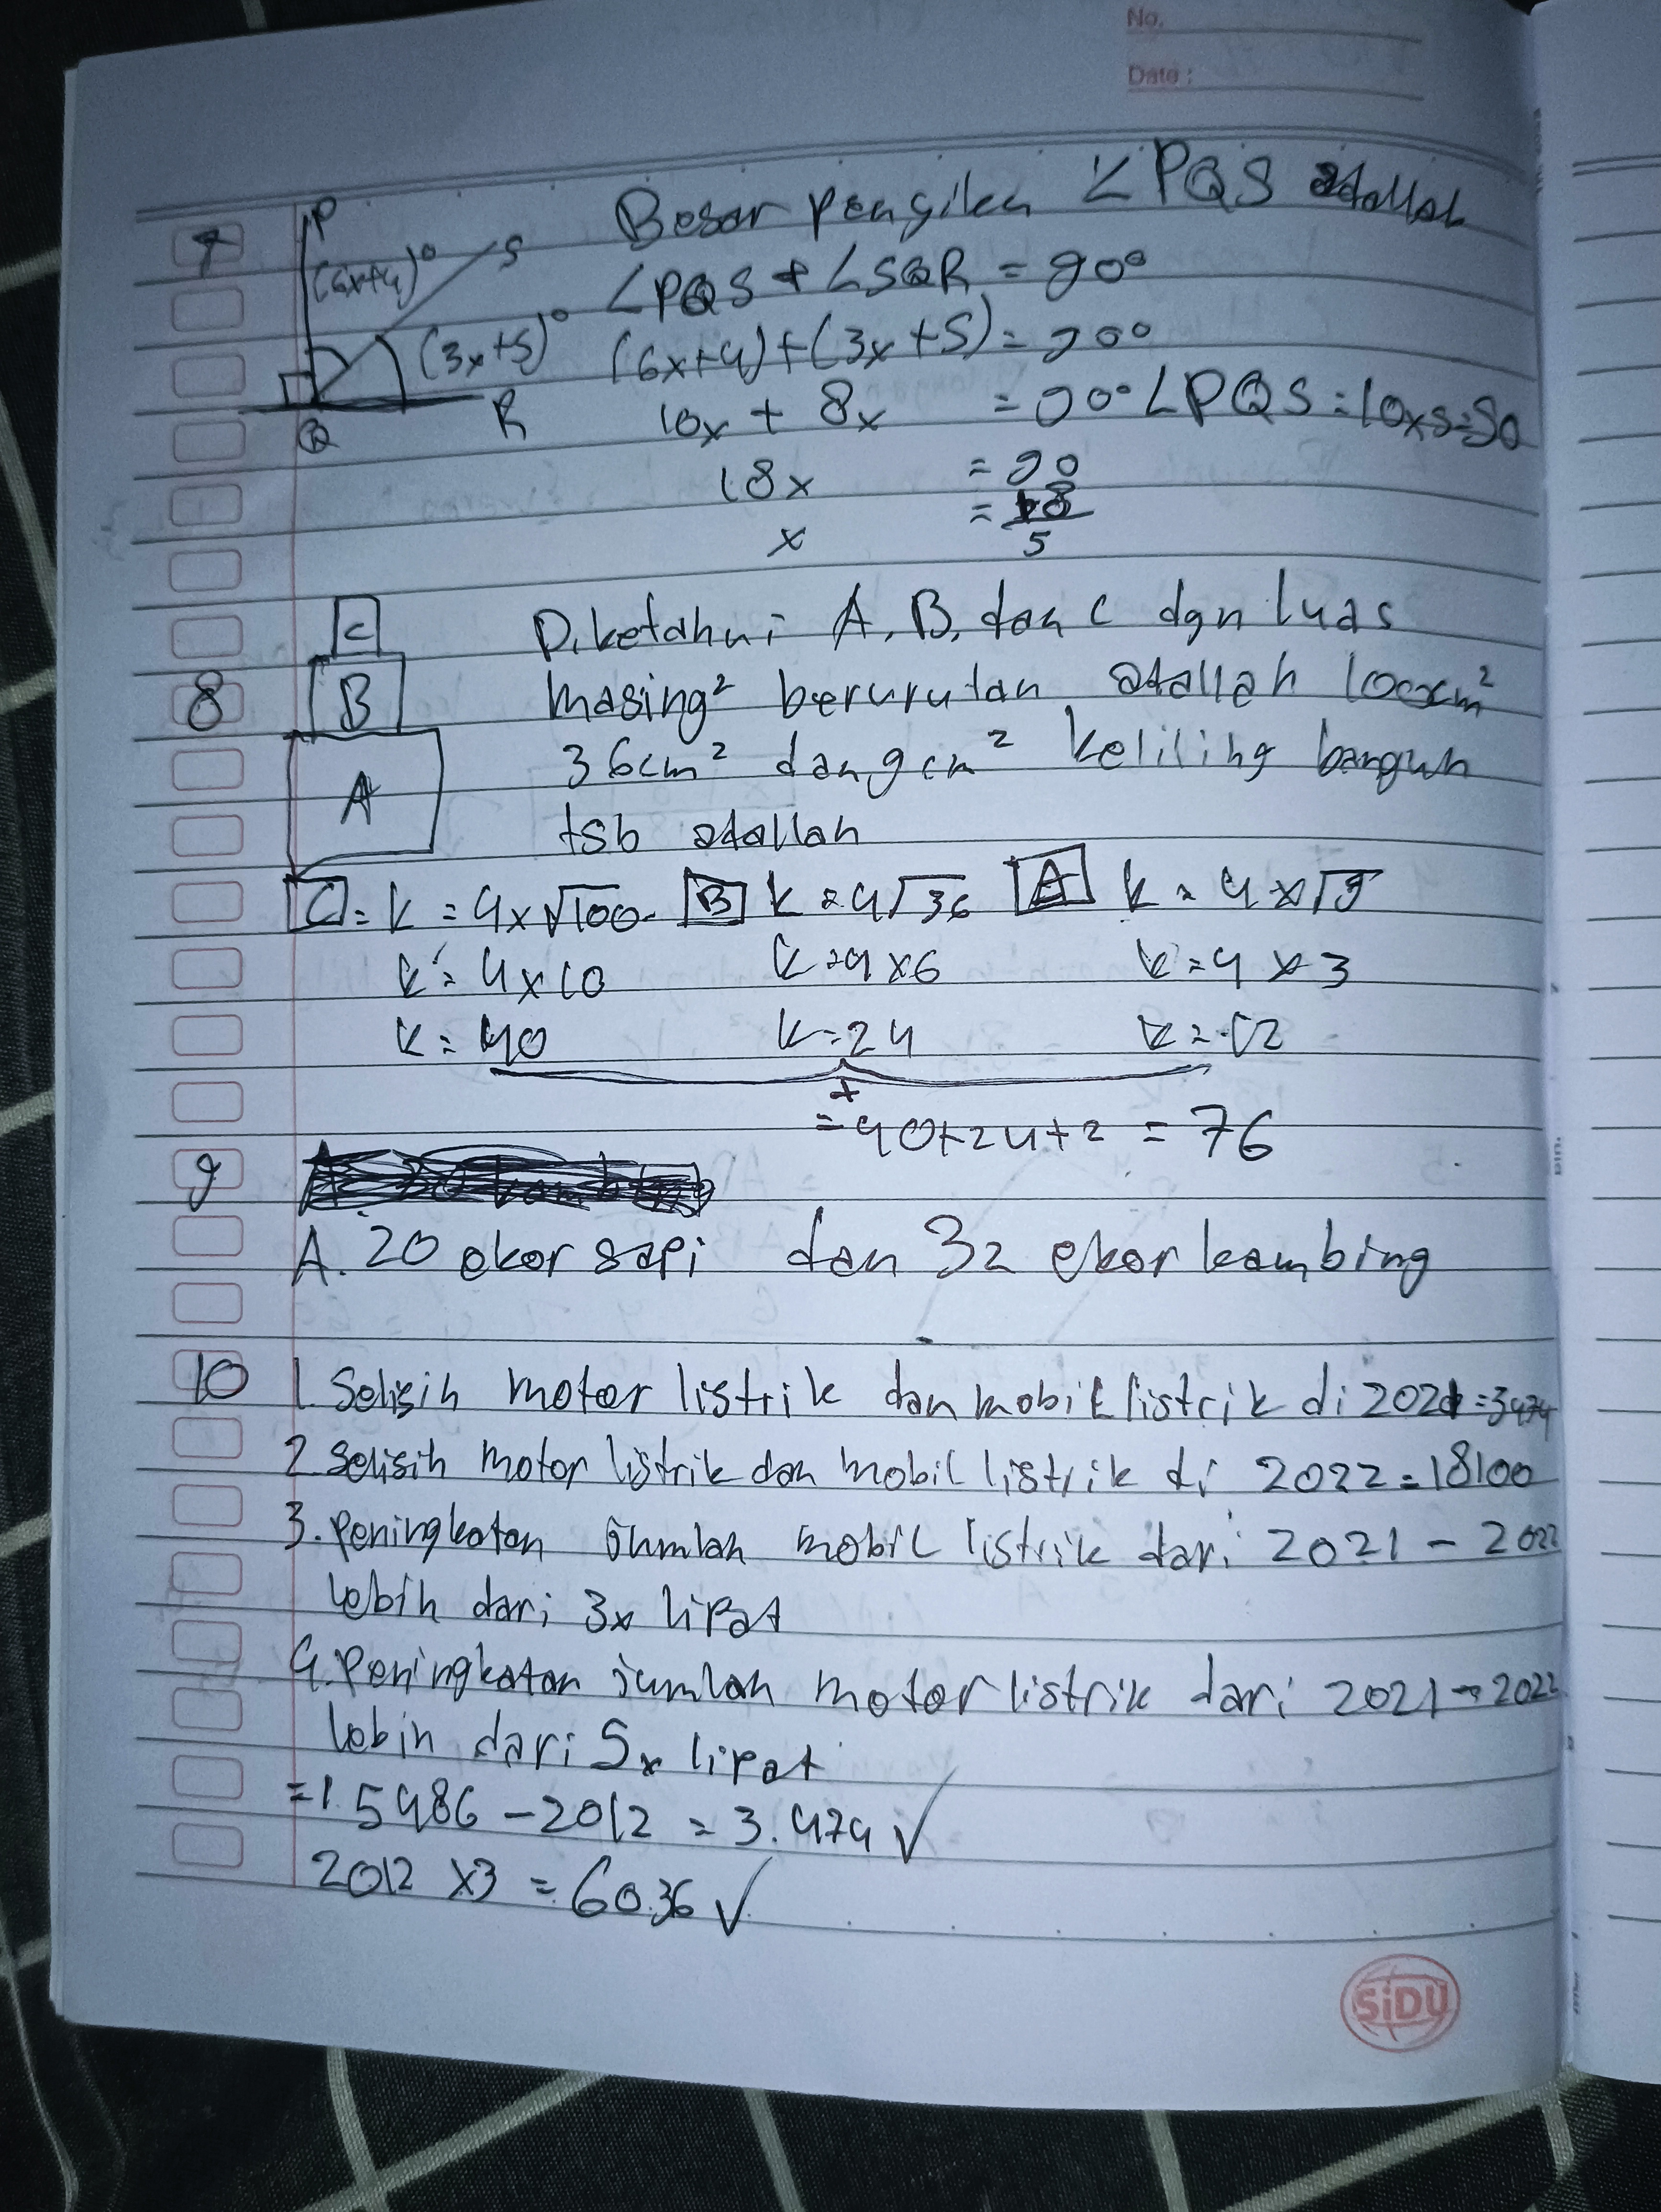 No.
Date :
7 P S Q R (6x+4)° (3x+5)°
Besar pengiken ∠PQS adallah
∠PQS + ∠SQR = 90°
(6x+4)+(3x+5) = 90°
10x + 8x = 90° ∠PQS = 10x5=50
18x = 90
x = 18
5
C Diketahui A, B, dan C dgn luas
8 B masing² berurutan adallah 100cm²
A 36cm² dan 9cm² keliling bangun
tsb adallah
C = k = 4x√100 B k = 4√36 A k = 4x√9
k = 4x10 k = 4x6 k = 4 x 3
k = 40 k = 24 k = 12
+
= 40+24+2 = 76
9
A. 20 ekor sapi dan 32 ekor kambing
10 1. Selisih motor listrik dan mobil listrik di 2021 = 3474
2. Selisih motor listrik dan mobil listrik di 2022 = 18100
3. Peningkatan jumlah mobil listrik dari 2021 - 2022
lebih dari 3x lipat
4. Peningkatan jumlah motor listrik dari 2021 - 2022
lebih dari 5x lipat
= 1. 5486 - 2012 = 3.474 ✓
2012 x3 = 6036 ✓
SiDU